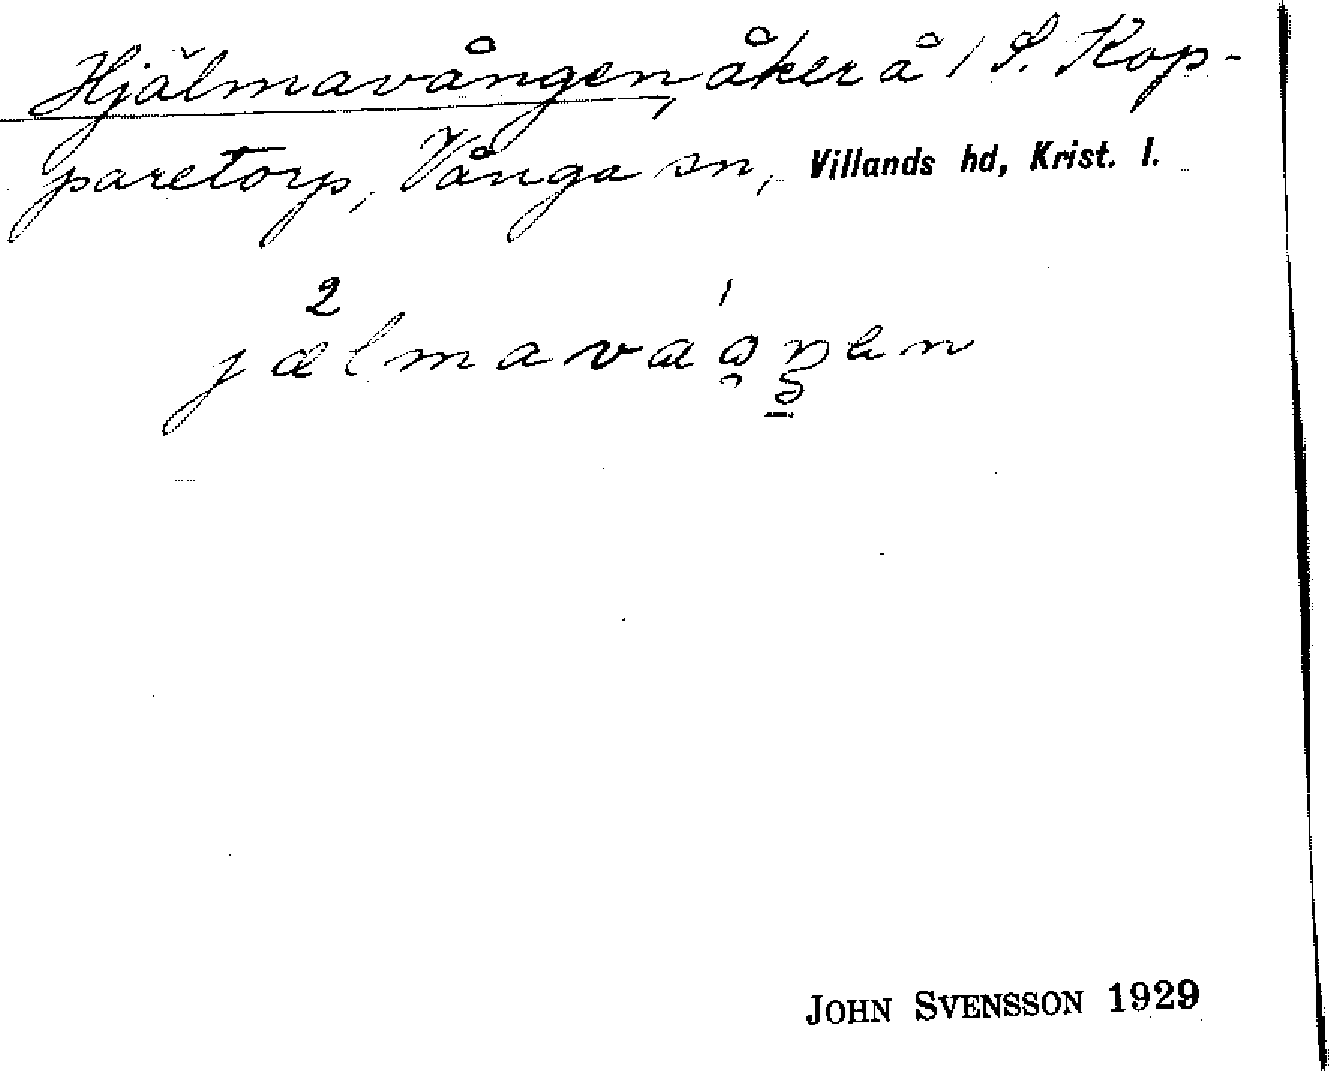 Hjälmavången, åker å 1 S. Kop-
paretorp, Vånga sn, Villands hd, Krist. l.
JOHN SVENSSON 1929